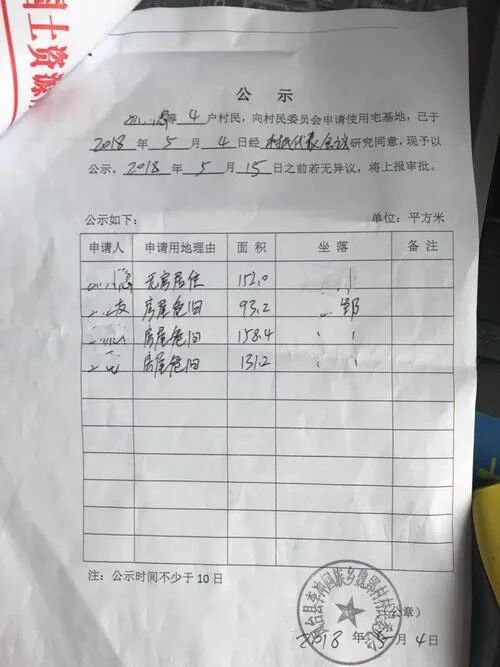 国土资源
公 示
等 4 户村民，向村民委员会申请使用宅基地，已于
2018 年 5 月 4 日经 村民代表会议 研究同意，现予以
公示。2018 年 5 月 15 日之前若无异议，将上报审批。
公示如下： 单位：平方米
申请人 申请用地理由 面 积 坐 落 备 注
无房居住 152.0
友 房屋危旧 93.2 郢
房屋危旧 158.4 〃
房屋危旧 131.2 〃
注：公示时间不少于 10 日
凤台县李冲回族乡魏郢村村民委员会
（公章）
2018 年 5 月 4 日